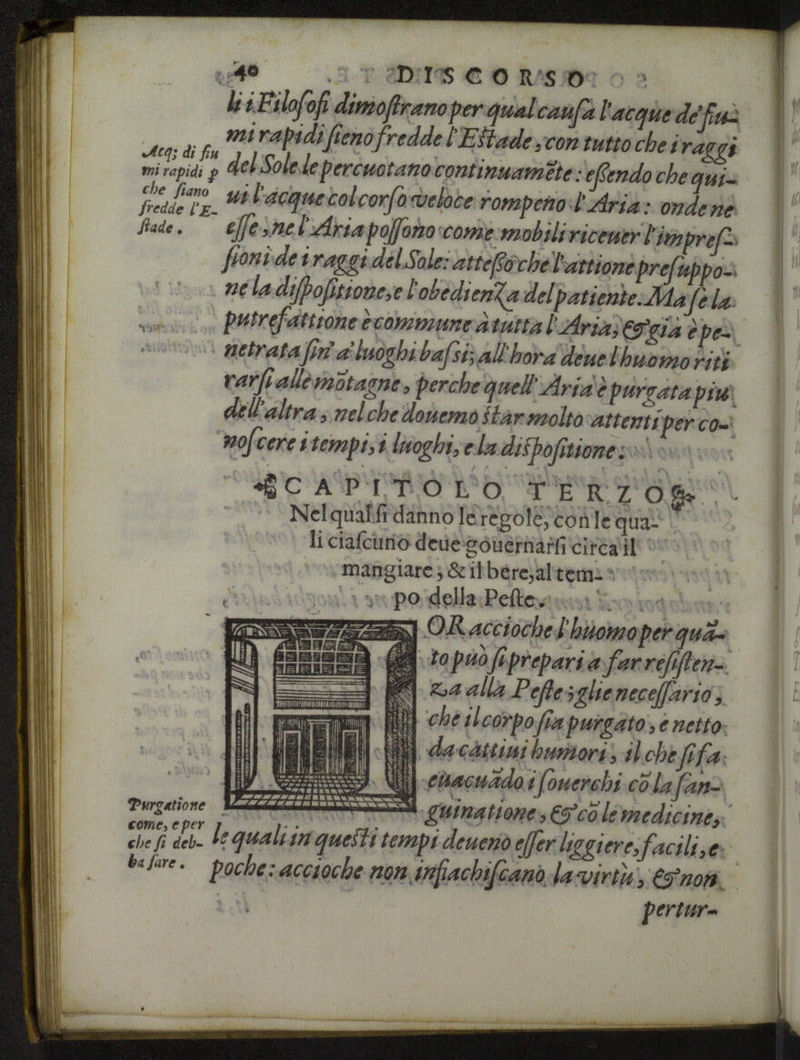 40 DISCORSO
li i Filosofi dimostrano per qual causa l'acque de' fiu-
mi rapidi sieno fredde l'Estade, con tutto che i raggi
del Sole le percuotano continuamẽte: essendo che qui-
ui l'acque col corso veloce rompeno l'Aria: onde ne
esse, ne l'Aria possono come mobili riceuer l'impres-
sioni de i raggi del Sole: atteso che l'attione presuppo-
ne la dispositione, e l'obedienza del patiente. Ma se la
putrefattione è commune à tutta l'Aria, & già è pe-
netrata fin' a' luoghi bassi; all'hora deue l'huomo riti
rarsi alle mõtagne, perche quell'Aria è purgata piu
dell'altra, nel che douemo star molto attenti per co-
noscere i tempi, i luoghi, e la dispositione.
Acq; di fiu
mi rapidi p
che siano
fredde l'E-
stade.
CAPITOLO TERZO
Nel qual si danno le regole, con le qua-
li ciascuno deue gouernarsi circa il
mangiare, & il bere, al tem-
po della Peste.
OR accioche l'huomo per quã-
to può si prepari a far resisten-
za alla Peste; glie necessario,
che il corpo sia purgato, e netto
da cattiui humori, il che si fa
euacuãdo i souerchi cõ la san-
guinatione, & cõ le medicine,
le quali in questi tempi deueno esser liggiere, facili, e
poche: accioche non infiachiscano la virtù, & non
Purgatione
come, e per
che si deb-
ba fare.
pertur-